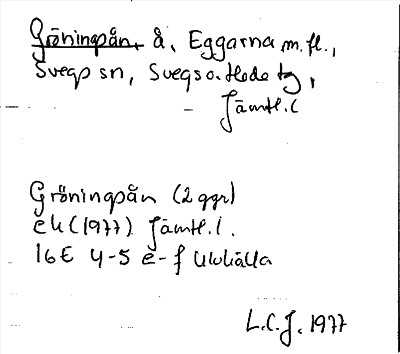 Gröningpån, å, Eggarna m.fl.,
Svegs sn, Svegs o. Hede tg,
Jämtl. l
Gröningpån (2 ggr)
ek (1977) Jämtl. l.
16E 4-5 e-f Ulvkälla
L.C.J. 1977